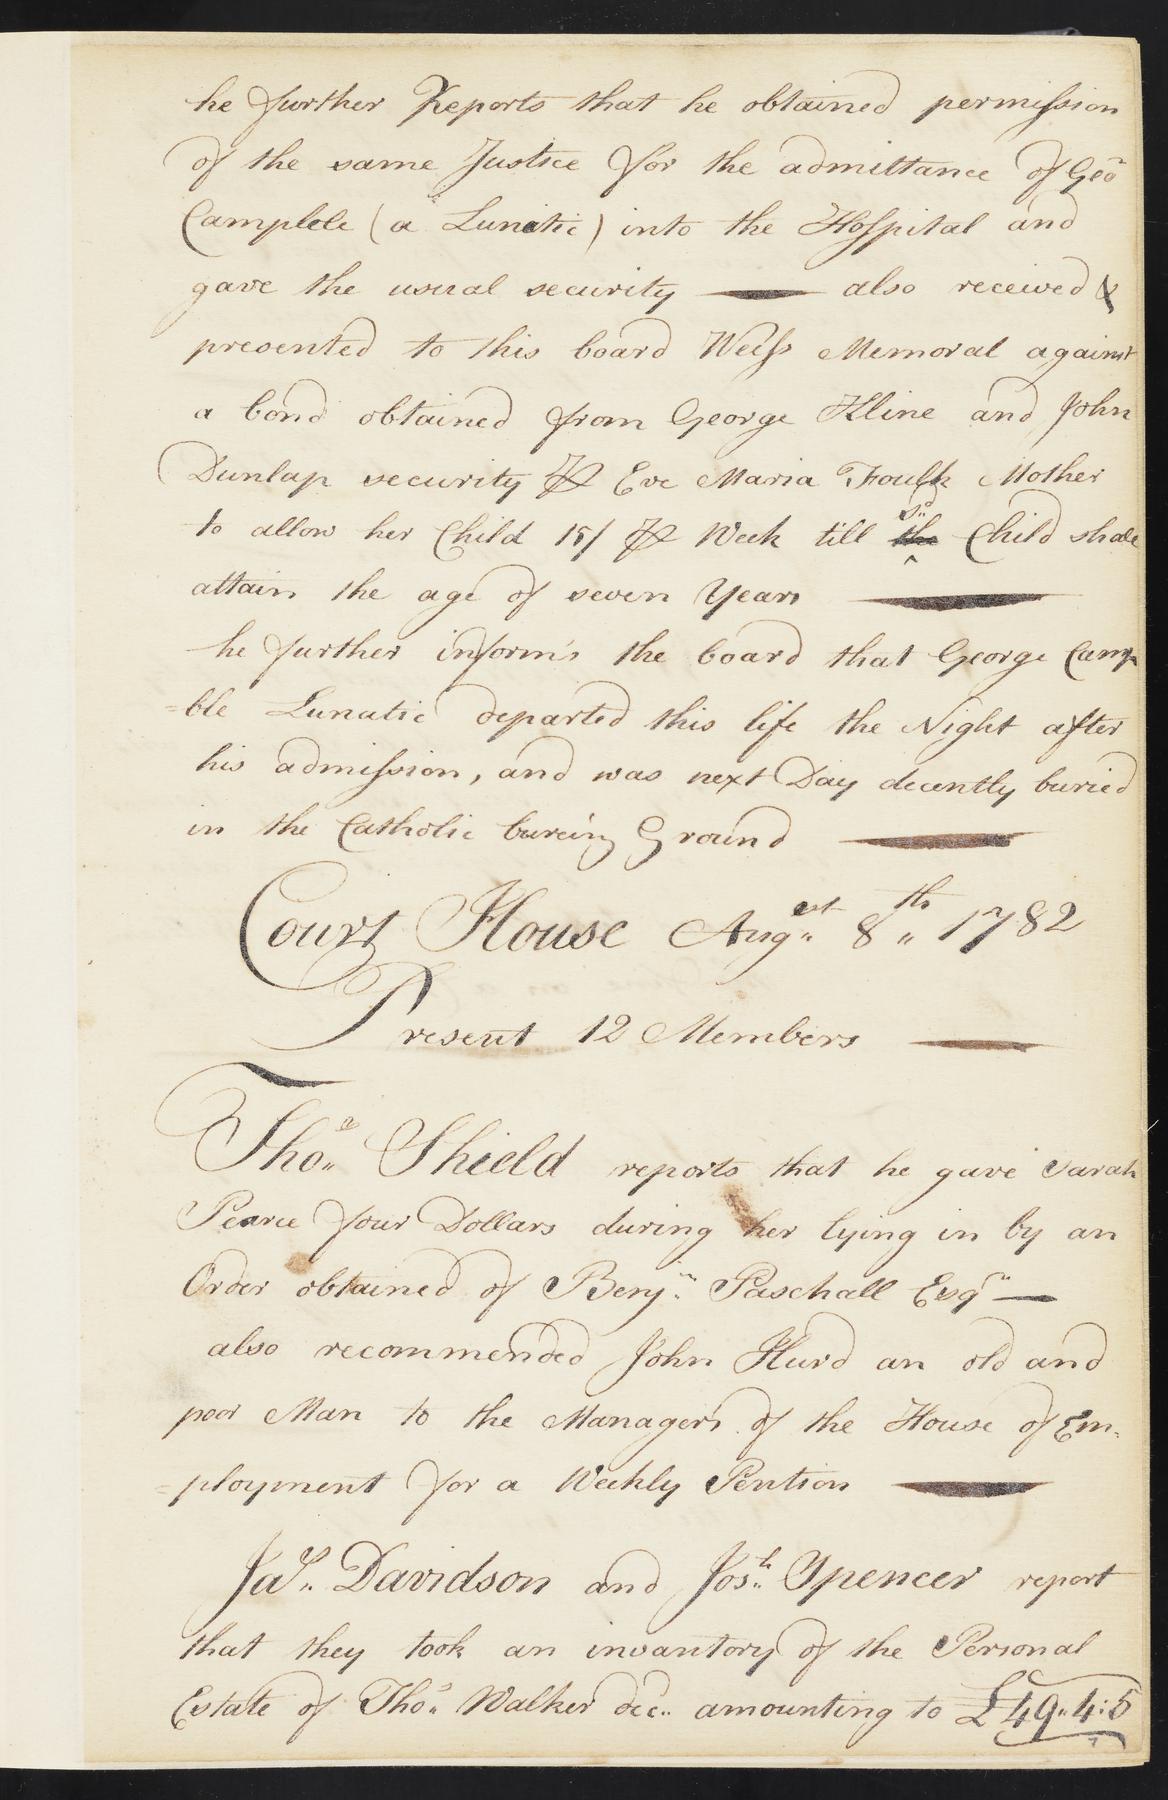 he further Reports that he obtained permission
of the same Justice for the admittance of Geo
Camplele (a Lunatic) into the Hospital and
gave the usual security — also received &
presented to this board Weiss Memoral against
a bond obtained from George Kline and John
Dunlap security ⅌ Eve Maria Foulk Mother
to allow her Child 15/ ⅌ Week till sd Child shall
attain the age of seven Years —
he further inform's the board that George Camp
=ble Lunatic departed this life the Night after
his admission, and was next Day decently buried
in the Catholic bureing Ground —
Court House Augst 8th 1782
Present 12 Members —
Thos Shield reports that he gave Sarah
Pearce four Dollars during her lying in by an
Order obtained of Benjn Paschall Esqr —
also recommended John Hurd an old and
poor Man to the Manager's of the House of Em-
=ployment for a Weekly Pention —
Jas Davidson and Josh Spencer report
that they took an invantory of the Personal
Estate of Thos Walker dec. amounting to £49..4:5